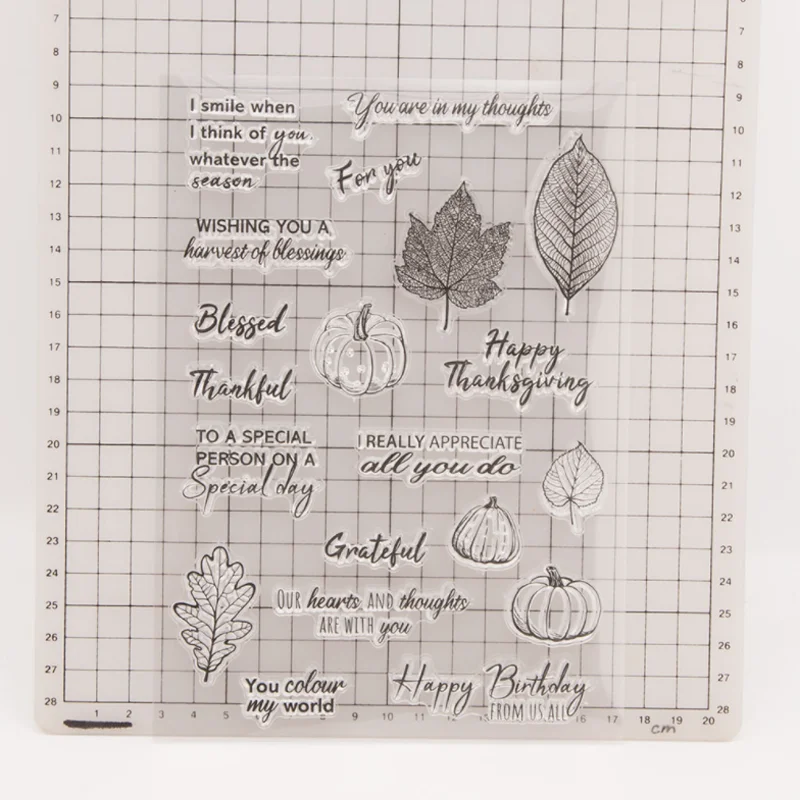 7
8
9
10
11
12
13
14
15
16
17
18
19
20
21
22
23
24
25
26
27
28
I smile when
I think of you,
whatever the
season
You are in my thoughts
For you
WISHING YOU A
harvest of blessings
Blessed
Thankful
Happy
Thanksgiving
TO A SPECIAL
PERSON ON A
Special day
I REALLY APPRECIATE
all you do
Grateful
OUR hearts AND thoughts
ARE WITH you
You colour
my world
Happy Birthday
FROM US ALL
7
8
9
10
11
12
13
14
15
16
17
18
19
20
21
22
23
24
25
26
27
28
1 2 3 4 5 8 9 10 11 12 13 16 17 18 19 20
cm